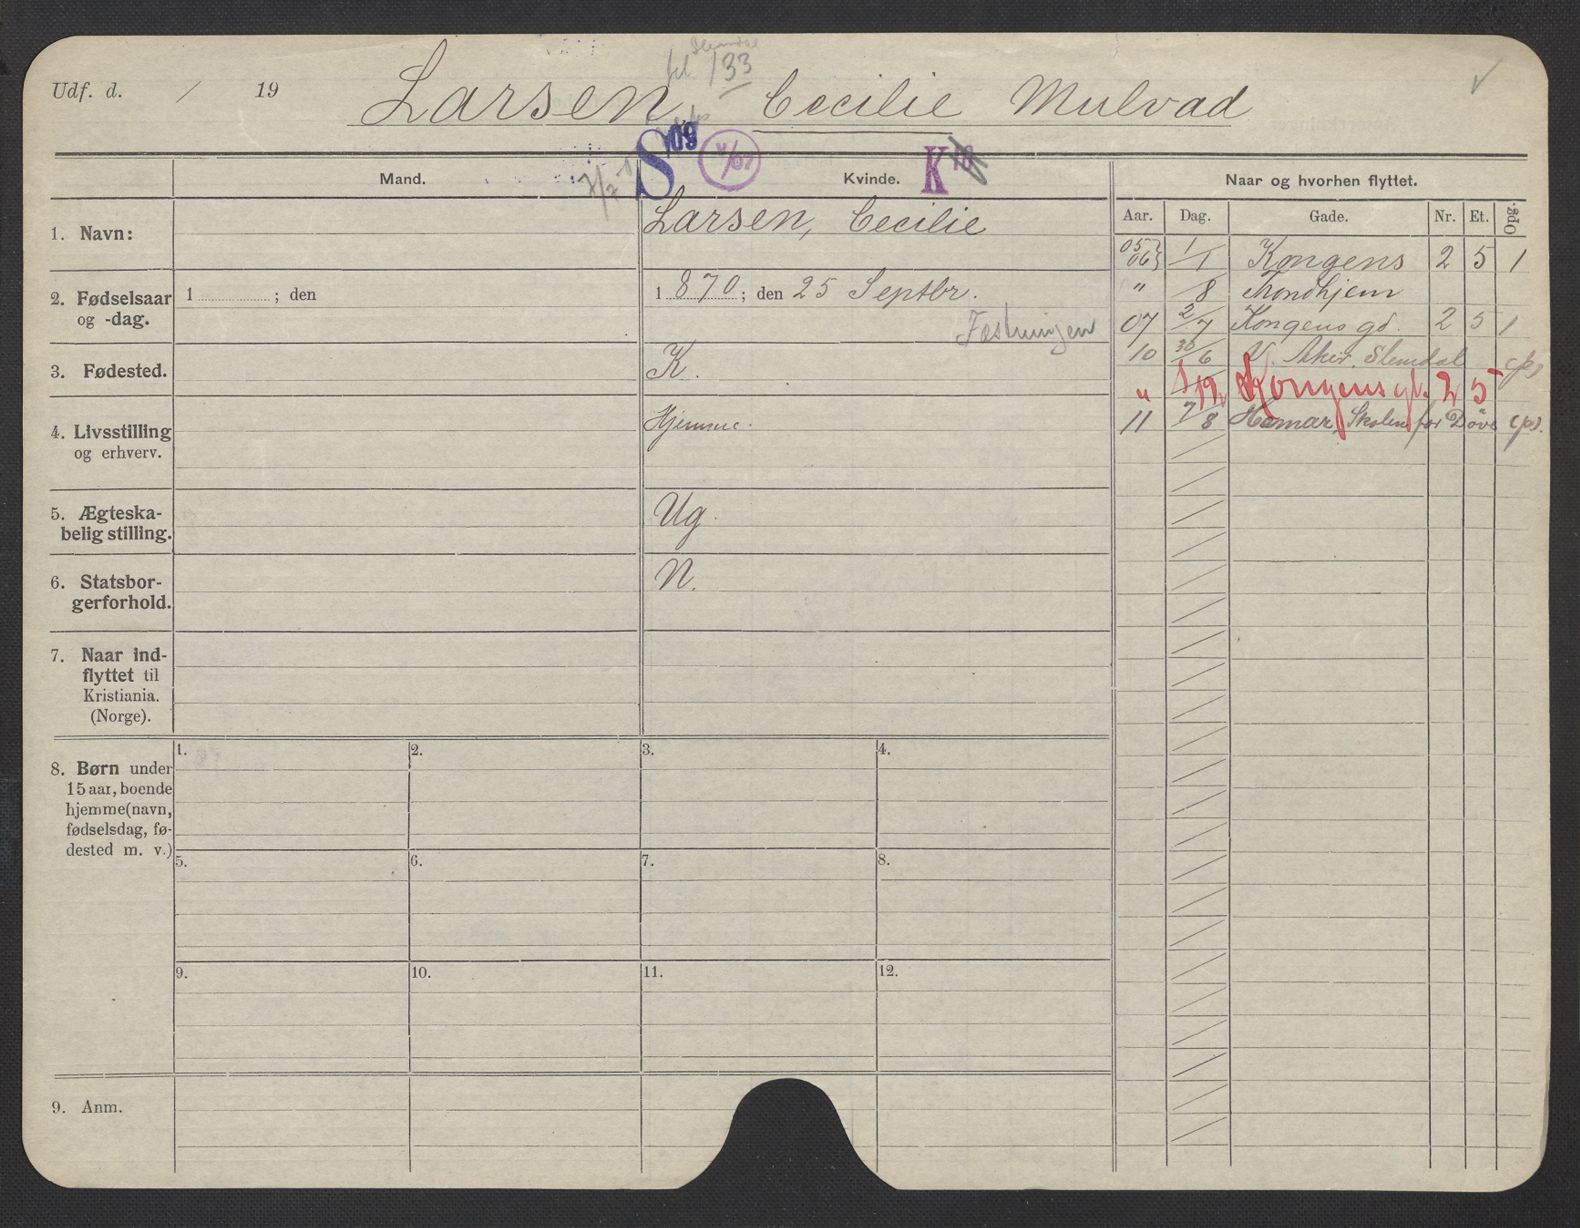 Udf. d. / 19
Larsen, Cecilie Mulvad
Slemdal
fel. /33
S 09
4/07
K 10
Mand.
Kvinde.
Naar og hvorhen flyttet.
Aar. Dag. Gade. Nr. Et. Opg.
1. Navn:
Larsen, Cecilie
2. Fødselsaar og -dag.
1 ; den
1 870 ; den 25 Septbr.
Fæstningen
3. Fødested.
K.
4. Livsstilling og erhverv.
Hjemme.
5. Ægteska-
belig stilling.
Ug.
6. Statsbor-
gerforhold.
N.
7. Naar ind-
flyttet til
Kristiania.
(Norge).
8. Børn under
15 aar, boende
hjemme (navn,
fødselsdag, fø-
dested m. v.)
1. 2. 3. 4.
5. 6. 7. 8.
9. 10. 11. 12.
9. Anm.
05 06 } 1/1 Kongens 2 5 1
" /8 Trondhjem
07 2/7 Kongens gd. 2 5 1
10 30/6 V. Aker. Slemdal
" 1/12 Kongens gt. 2 5
11 7/8 Hamar, Skolen for Døve